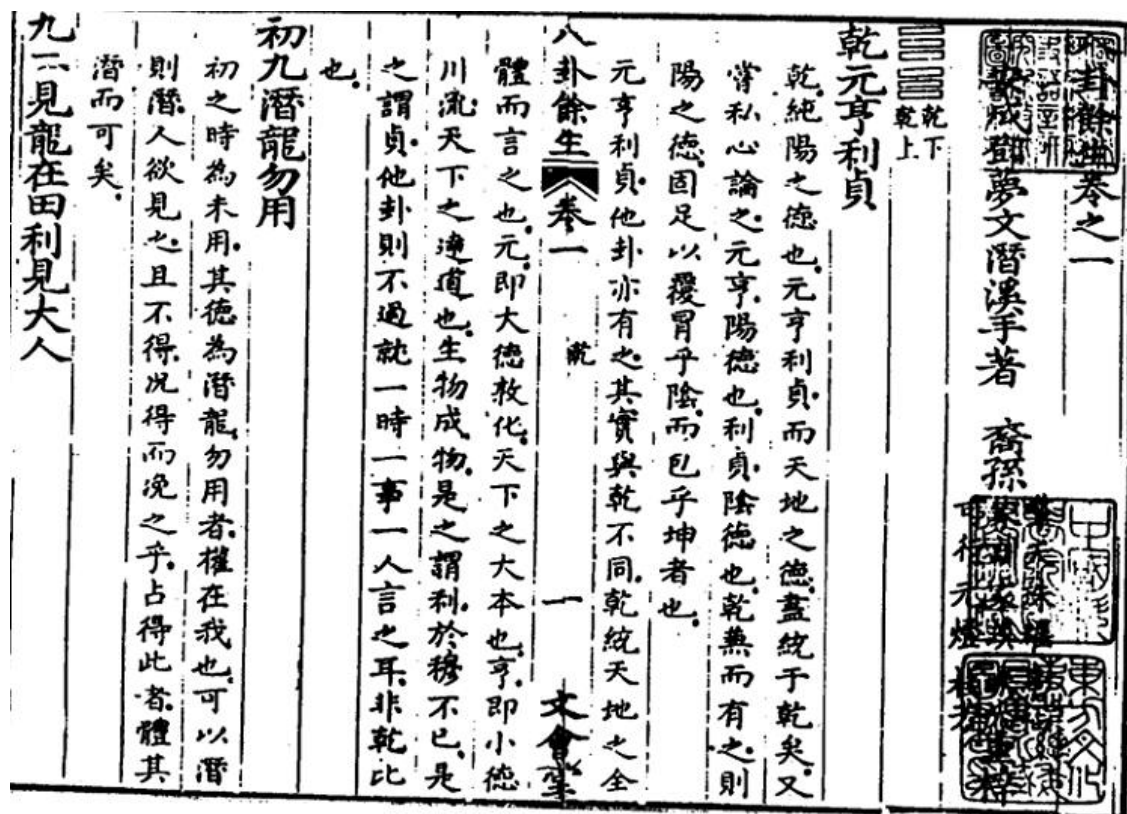 八卦餘生卷之一
安成鄧夢文潛溪手著 裔孫
可行元燈
乾下
乾上
乾元亨利貞
乾純陽之德也元亨利貞而天地之德盡統于乾矣又
嘗私心論之元亨陽德也利貞陰德也乾兼而有之則
陽之德固足以覆冒乎陰而包乎坤者也
元亨利貞他卦亦有之其實與乾不同乾統天地之全
八卦餘生 卷一 乾 一 文會堂
體而言之也元即大德敦化天下之大本也亨即小德
川流天下之達道也生物成物是之謂利於穆不已是
之謂貞他卦則不過就一時一事一人言之耳非乾比
也
初九潛龍勿用
初之時為未用其德為潛龍勿用者權在我也可以潛
則潛人欲見之且不得況得而浼之乎占得此者體其
潛而可矣
九二見龍在田利見大人